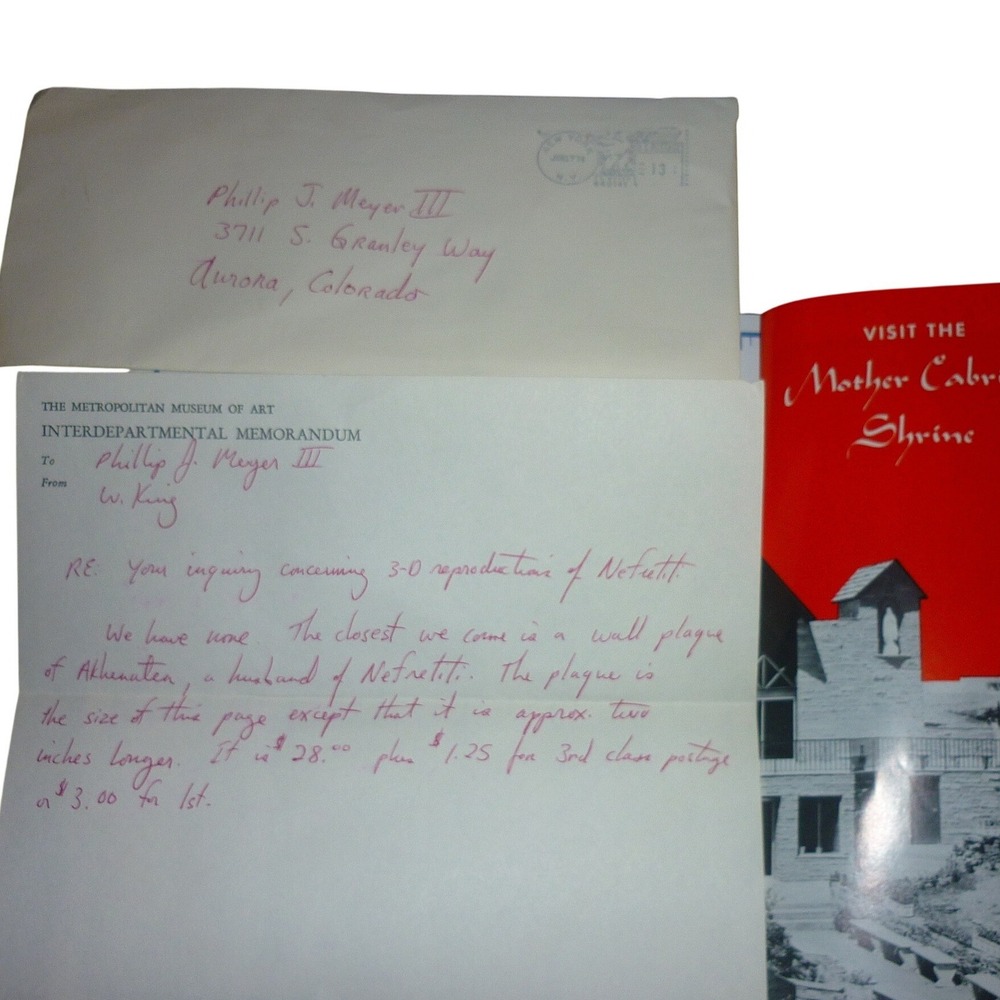 NEW YORK
N.Y.
13
Phillip J. Meyer III
3711 S. Granley Way
Aurora, Colorado
VISIT THE
Mother Cabri
Shrine
THE METROPOLITAN MUSEUM OF ART
INTERDEPARTMENTAL MEMORANDUM
To Phillip J. Meyer III
From W. King
RE: Your inquiry concerning 3-D reproductions of Nefretiti.
We have none. The closest we come is a wall plaque
of Akhenaten, a husband of Nefretiti. The plaque is
the size of this page except that it is approx. two
inches longer. It is $28.00 plus $1.25 for 3rd class postage
or $3.00 for 1st.